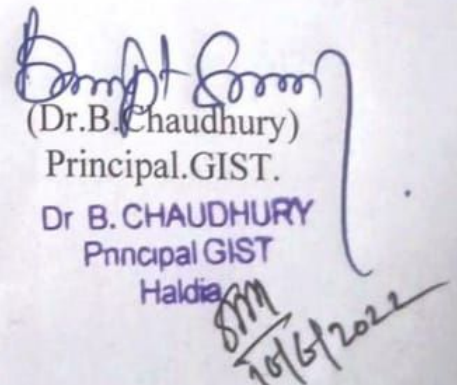 (Dr.B.Chaudhury)
Principal.GIST.
Dr B. CHAUDHURY
Principal GIST
Haldia
10/6/2022